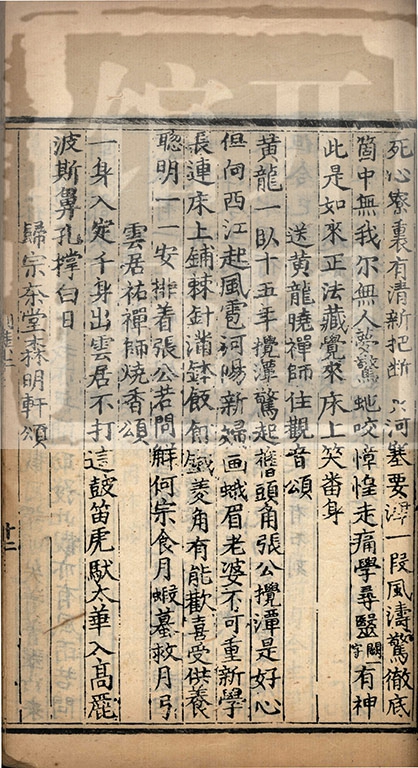 死心寮裏有清新把斷 河塞要津一段風濤驚徹底
箇中無我尔無人 驚虵咬慞惶走痛學尋醫闕字有神
此是如來正法藏覺來床上笑番身
送黃龍曉禪師住觀音頌
黃龍一臥十五年攪潭驚起 頭角張公攪潭是好心
但向西江起風雹河陽新婦画蛾眉老婆不可重新學
長連床上鋪棘針滿鉢飯飣鐵菱角有能歡喜受供養
聦明一一安排着張公若問解何宗食月蝦蟇救月弓
雲居祐禪師燒香頌
一身入定千身出雲居不打這鼓笛虎馱太華入高麗
波斯鼻孔撑白日
歸宗奈堂森明軒頌
十二